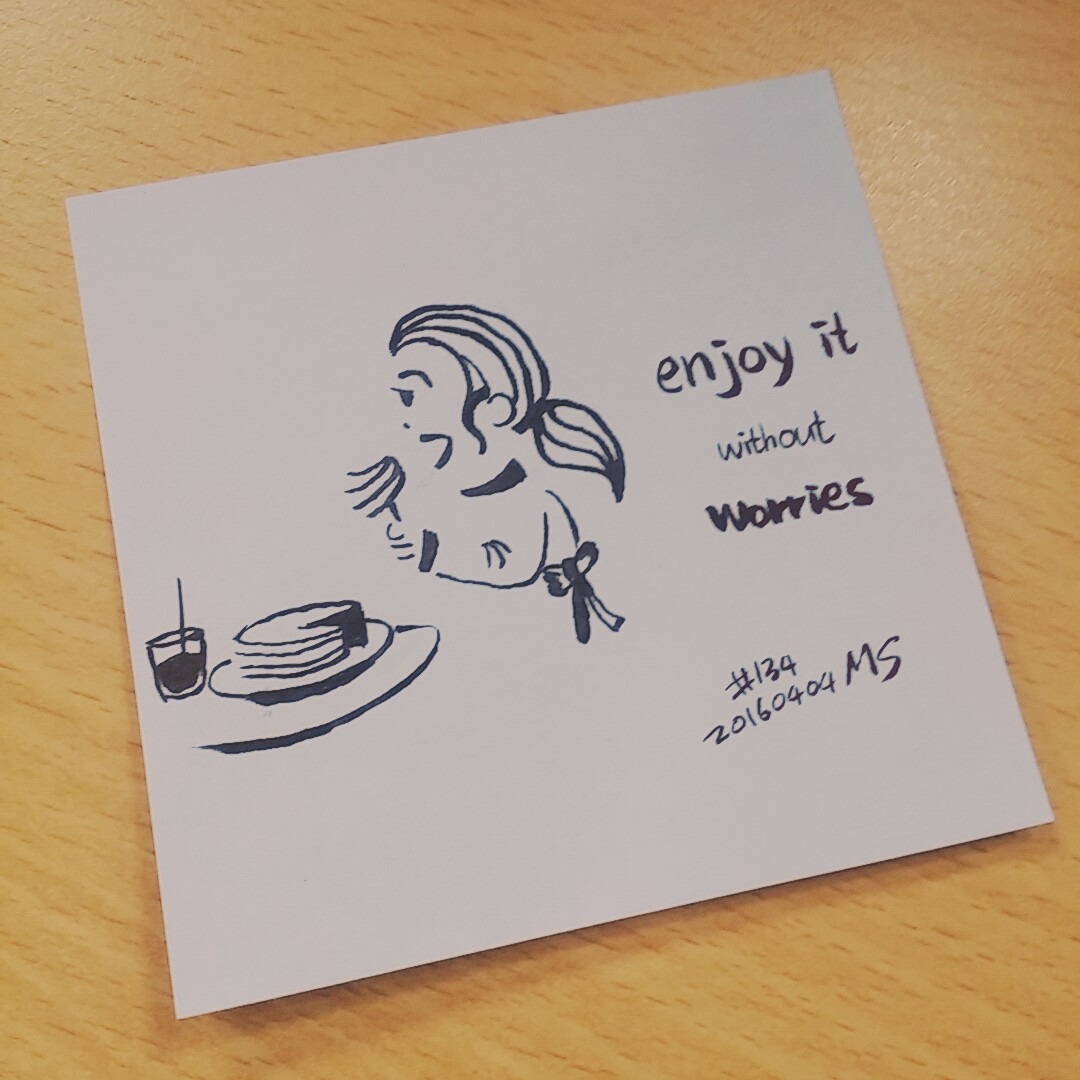 enjoy it
without
worries
#134
20160404 MS